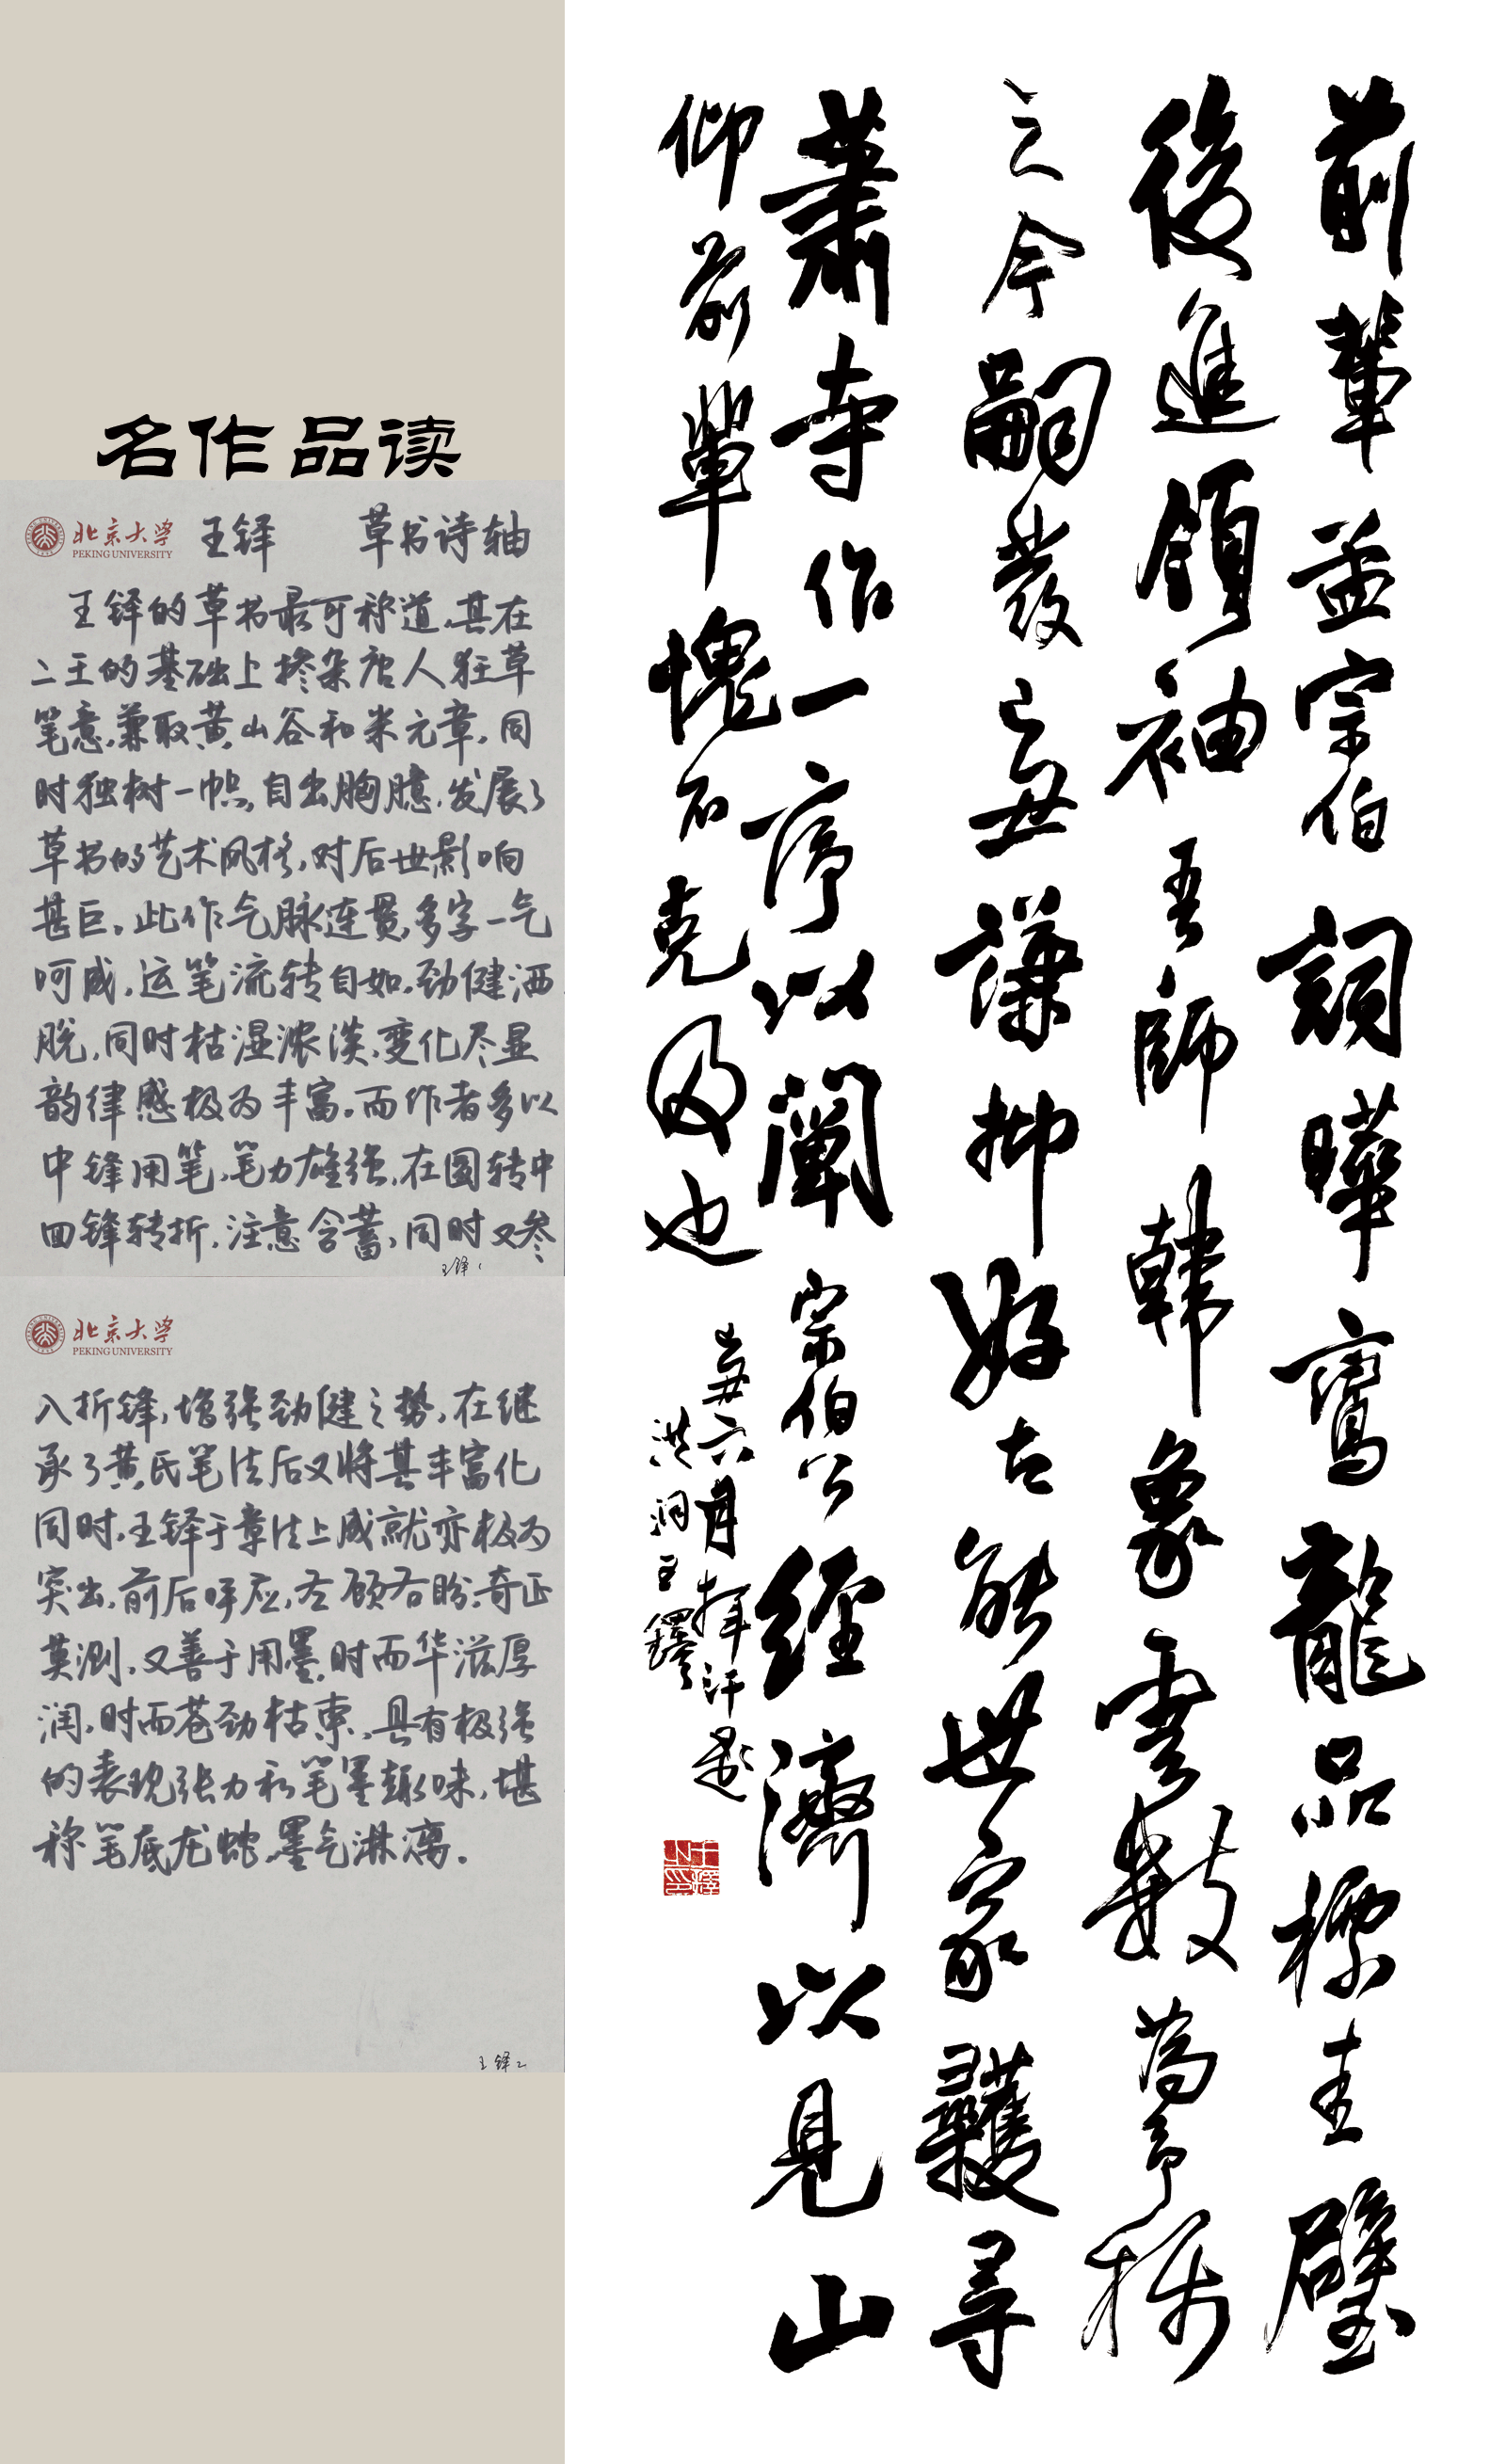 名作品读
北京大学
PEKING UNIVERSITY
王铎 草书诗轴
王铎的草书最可称道，其在
二王的基础上掺杂唐人狂草
笔意，兼取黄山谷和米元章，同
时独树一帜，自出胸臆，发展了
草书的艺术风格，对后世影响
甚巨。此作气脉连贯，多字一气
呵成，运笔流转自如，劲健洒
脱，同时枯湿浓淡，变化尽显
韵律感极为丰富。而作者多以
中锋用笔，笔力雄强，在圆转中
回锋转折，注意含蓄，同时又参
王铎1
北京大学
PEKING UNIVERSITY
入折锋，增强劲健之势，在继
承了黄氏笔法后又将其丰富化
同时，王铎于章法上成就亦极为
突出，前后呼应，左顾右盼，奇正
莫测，又善于用墨，时而华滋厚
润，时而苍劲枯索，具有极强
的表现张力和笔墨趣味，堪
称笔底龙蛇，墨气淋漓。
王铎2
前輩益宗伯詞曄鸞龍品標圭璧
後進領袖吾師韓象雲數為予稱
之今嗣發丑世謙抑好古能世家護尋
蕭寺作一序以闡宗伯公經濟以見山
仰前輩愧不克及也
丑六月揮汗題
洪洞王鐸